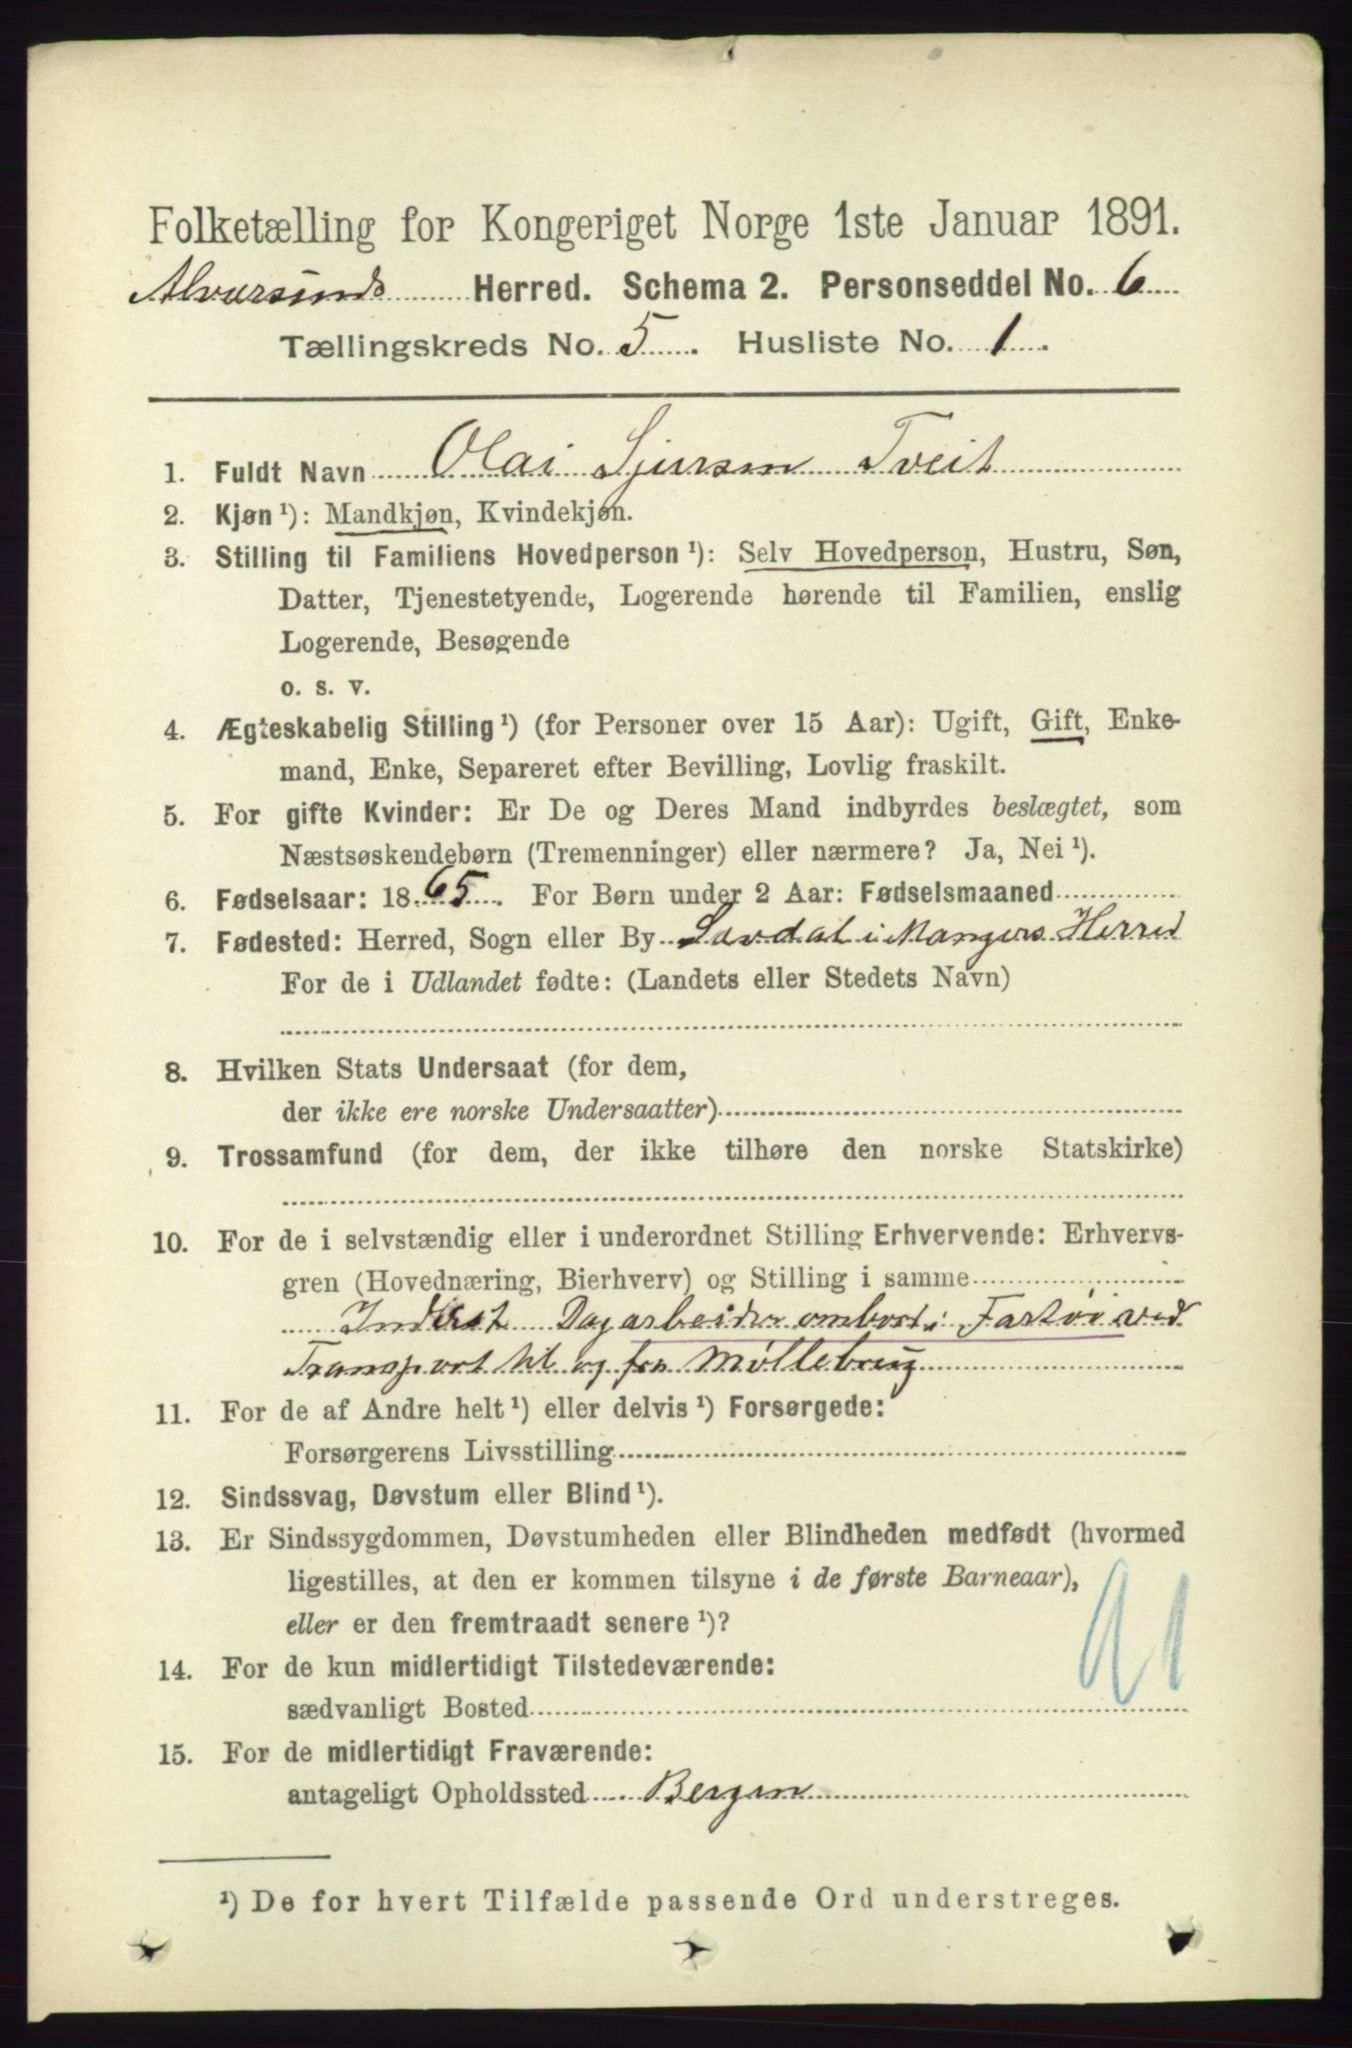 Folketælling for Kongeriget Norge 1ste Januar 1891.
Alversunds Herred. Schema 2. Personseddel No. 6
Tællingskreds No. 5. Husliste No. 1.
1. Fuldt Navn Olai Sjursen Tveit
2. Kjøn ¹): Mandkjøn, Kvindekjøn.
3. Stilling til Familiens Hovedperson ¹): Selv Hovedperson, Hustru, Søn,
Datter, Tjenestetyende, Logerende hørende til Familien, enslig
Logerende, Besøgende
o. s. v.
4. Ægteskabelig Stilling ¹) (for Personer over 15 Aar): Ugift, Gift, Enke-
mand, Enke, Separeret efter Bevilling, Lovlig fraskilt.
5. For gifte Kvinder: Er De og Deres Mand indbyrdes beslægtet, som
Næstsøskendebørn (Tremenninger) eller nærmere? Ja, Nei ¹).
6. Fødselsaar: 1865. For Børn under 2 Aar: Fødselsmaaned
7. Fødested: Herred, Sogn eller By i Mangers Herred
For de i Udlandet fødte: (Landets eller Stedets Navn)
8. Hvilken Stats Undersaat (for dem,
der ikke ere norske Undersaatter)
9. Trossamfund (for dem, der ikke tilhøre den norske Statskirke)
10. For de i selvstændig eller i underordnet Stilling Erhvervende: Erhvervs-
gren (Hovednæring, Bierhverv) og Stilling i samme
Inderst Dagarbeider ombord i Fartøi ved
Transport til og fra Møllebrug
11. For de af Andre helt ¹) eller delvis ¹) Forsørgede:
Forsørgerens Livsstilling
12. Sindssvag, Døvstum eller Blind ¹).
13. Er Sindssygdommen, Døvstumheden eller Blindheden medfødt (hvormed
ligestilles, at den er kommen tilsyne i de første Barneaar),
eller er den fremtraadt senere ¹)?
91
14. For de kun midlertidigt Tilstedeværende:
sædvanligt Bosted
15. For de midlertidigt Fraværende:
antageligt Opholdssted Bergen
¹) De for hvert Tilfælde passende Ord understreges.